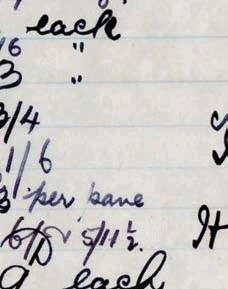 /6 each
3 "
3/4
1/6
3 per pane
6/D 5/11½.
9 each